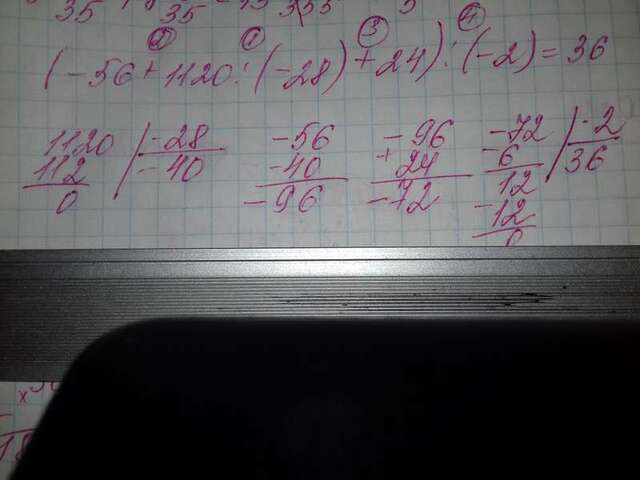 35 35 35
② ① ③ ④
(-56+1120:(-28)+24):(-2)=36
1120 -28 -56 -96 -72 -2
112 -40 -40 +24 -6 36
0 -96 -72 12
-12
0
18